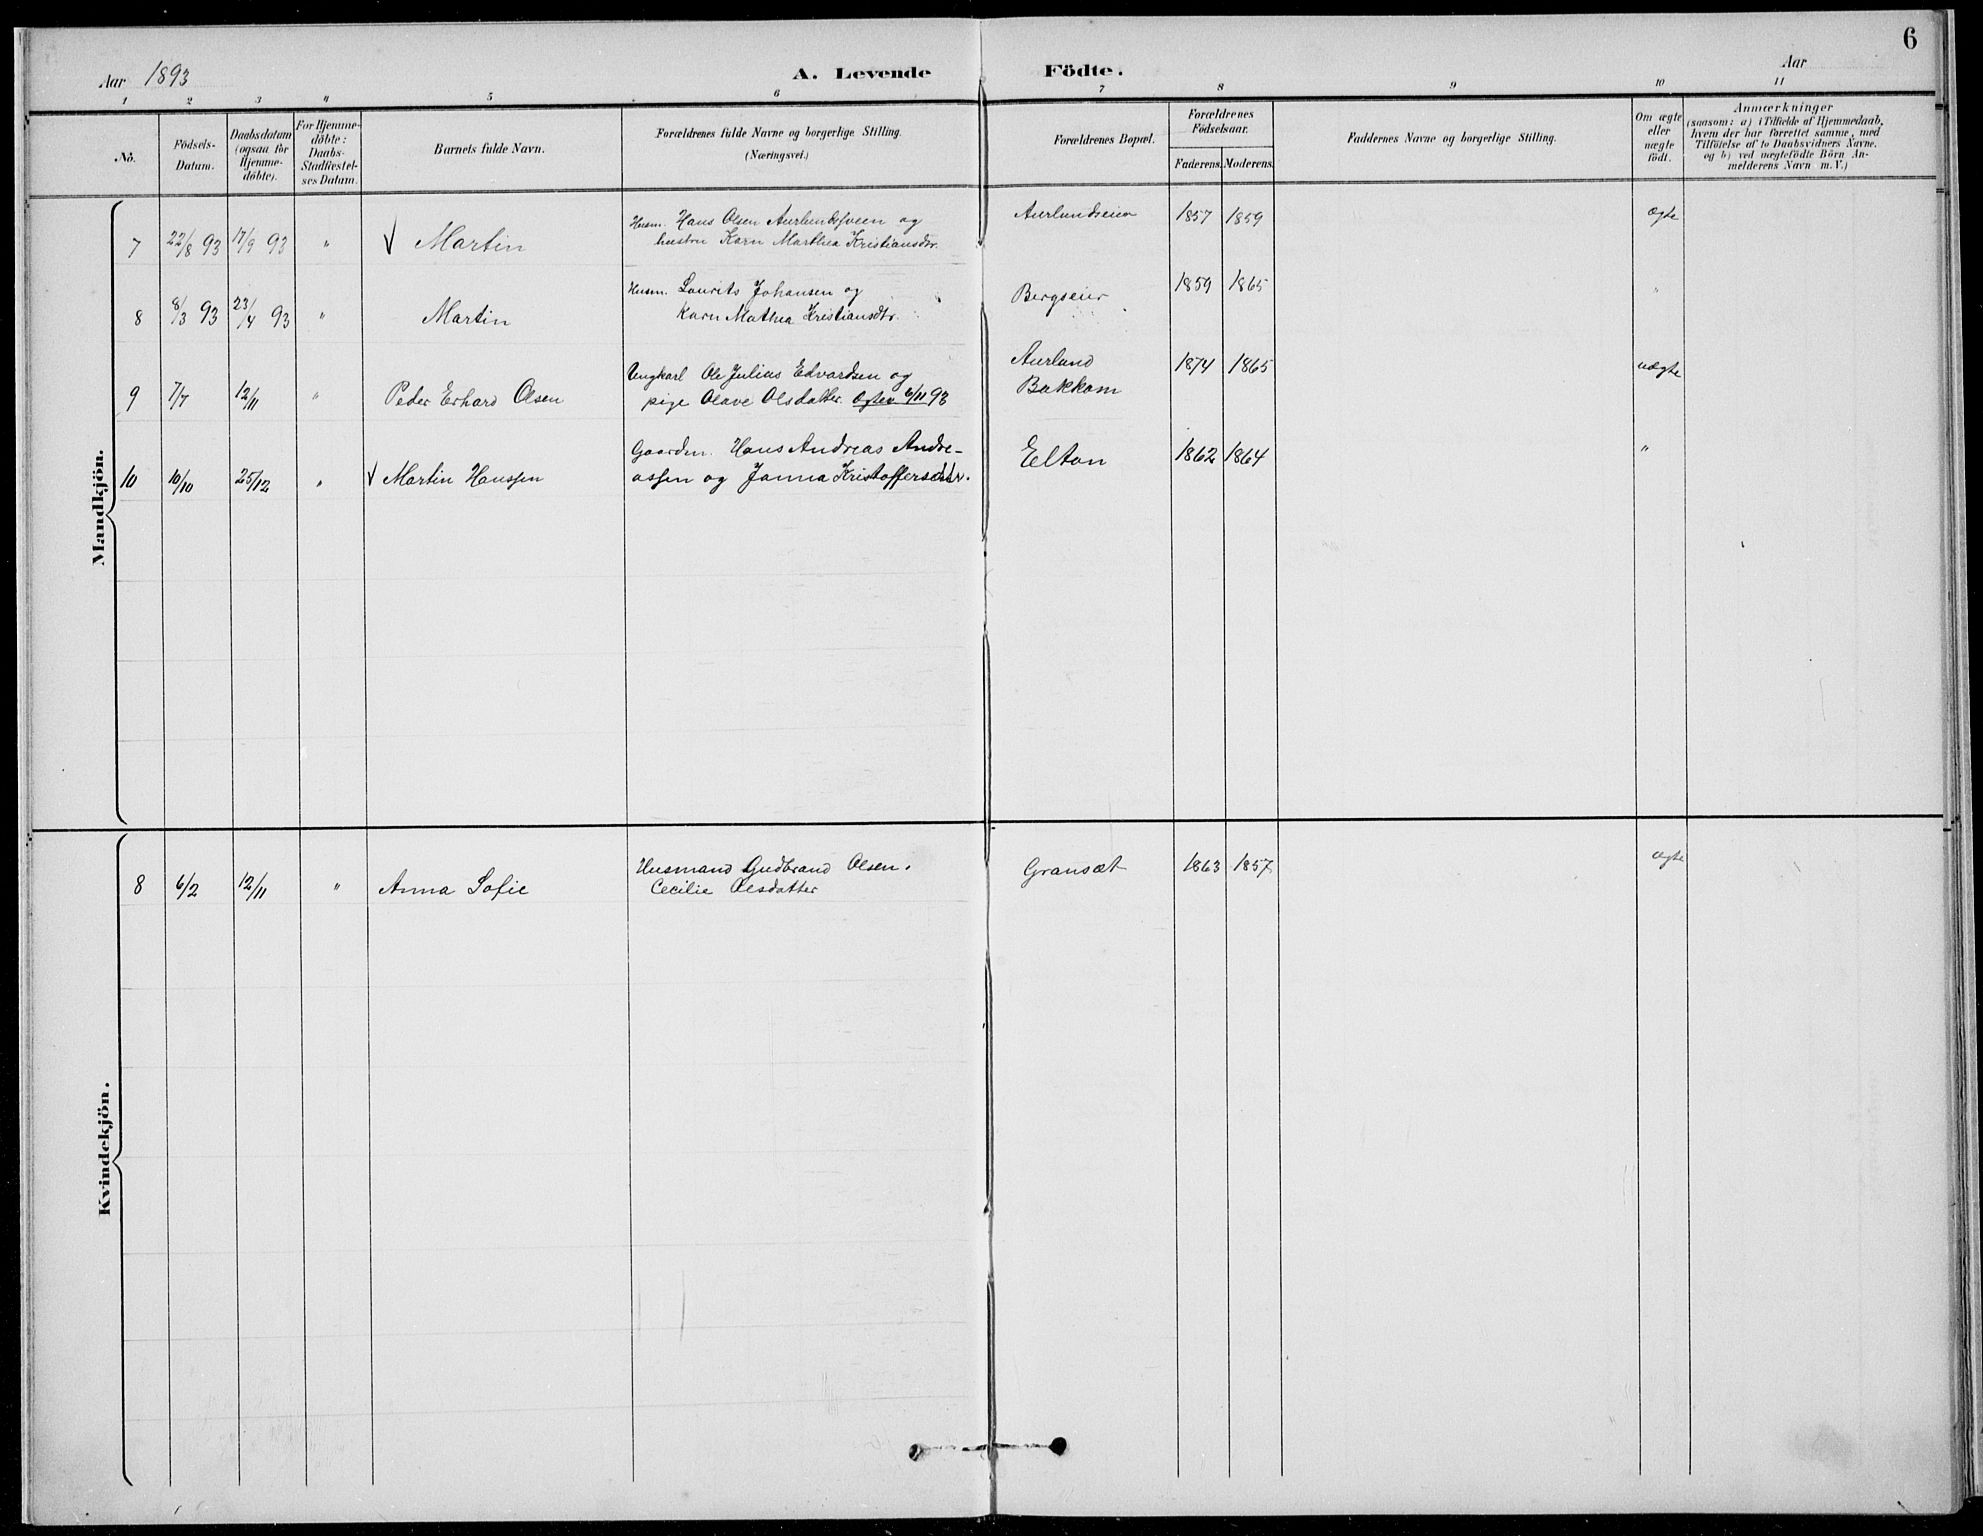 6
Aar 1893
A. Levende Födte.
Aar
1 2 3 4 5 6 7 8 9 10 11
No.
Födsels-
Datum.
Daabsdatum
(ogsaa for
Hjemme-
döbte).
For Hjemme-
döbte:
Daabs-
Stadfæstel-
ses Datum.
Barnets fulde Navn.
Forældrenes fulde Navne og borgerlige Stilling.
(Næringsvei.)
Forældrenes Bopæl.
Forældrenes
Födselsaar.
Faderens. Moderens.
Faddernes Navne og borgerlige Stilling.
Om ægte
eller
uægte
födt.
Anmærkninger
(saasom: a) i Tilfælde af Hjemmedaab,
hvem der har forrettet samme, med
Tilföielse af to Daabsvidners Navne,
og b) ved uægtefödte Börn An-
melderens Navn m.V.)
Mandkjön.
7 22/8 93 17/9 93 " √ Martin
Husm. Hans Olsen Aurlundsveen og
hustru Karn Marthea Kristiansdtr.
Aurlundseier 1857 1859 ægte
8 8/3 93 23/4 93 " Martin
Husm. Laurits Johansen og
Karn Mathea Kristiansdtr.
Bergseier 1859 1865 "
9 7/7 12/11 " Peder Erhard Olsen
Ungkarl Ole Julius Edvardsen og
pige Olave Olsdatter. Ægtev 6/11 93
Aurlund
Bakkom
1874 1865 uægte
10 10/10 25/12 " √ Martin Hanssen
Gaardm. Hans Andreas Andre-
assen og Janna Kristoffersdtr.
Elton 1862 1864 "
Kvindekjön.
8 6/2 12/11 " Anna Sofie
Husmand Gudbrand Olsen.
Cecilie Olsdatter
Gransæt 1863 1857 ægte